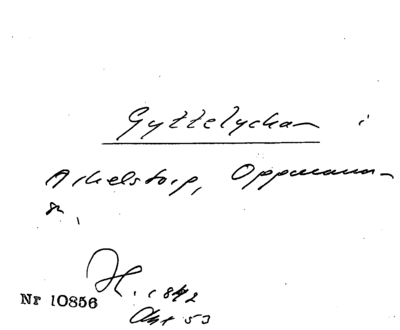 Gyttelyckan i
Arkelstorp, Oppmanna-
sn.
H. 1842
Akt 53
Nr 10856